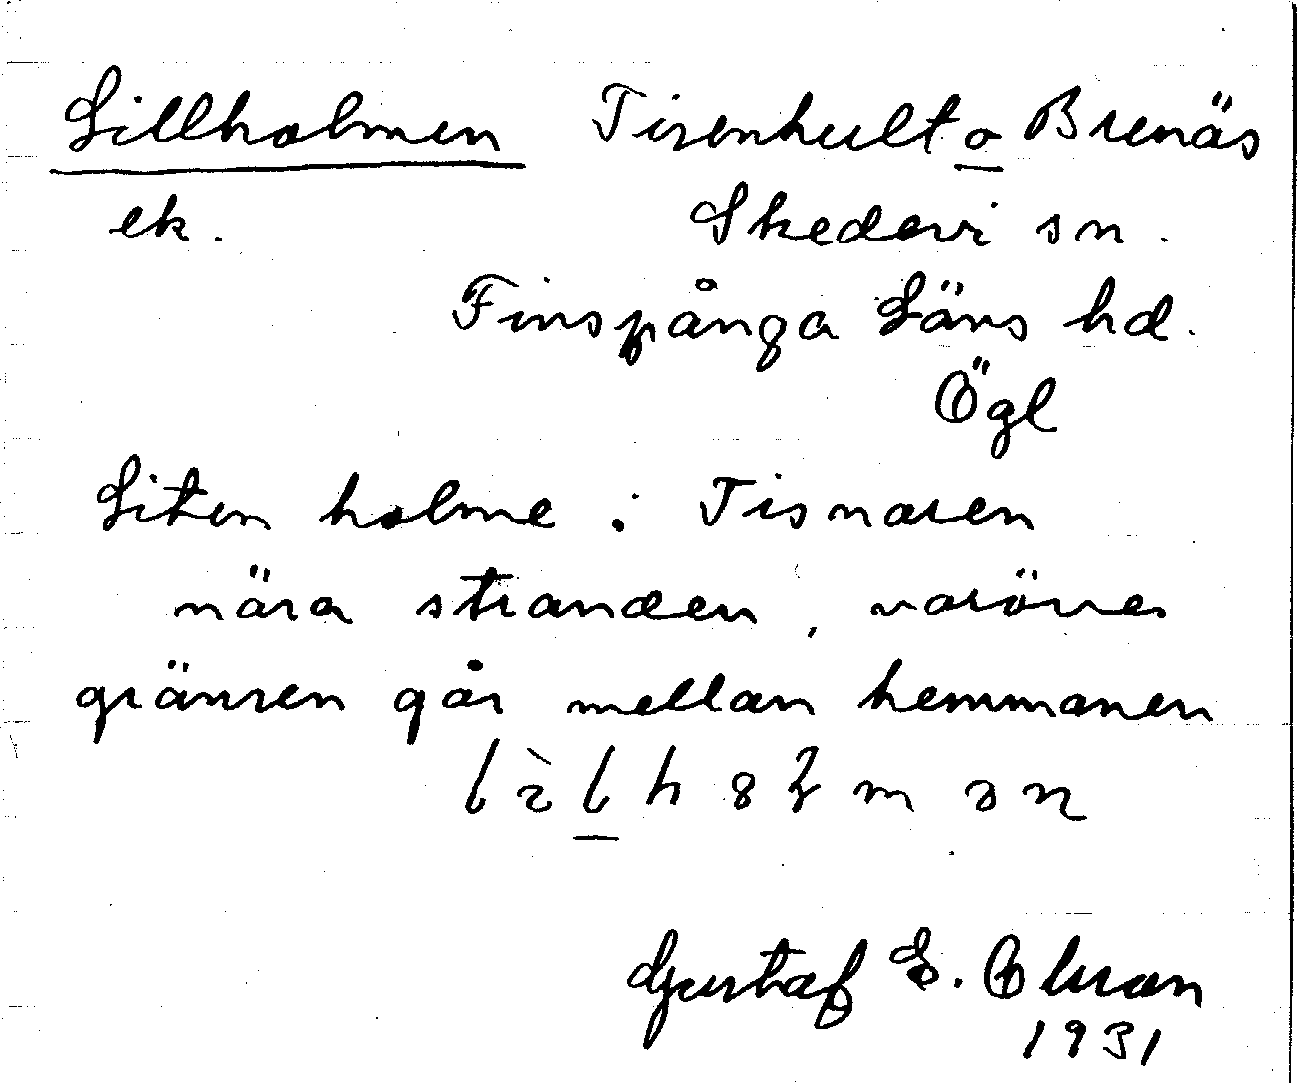 Lillholmen Tisenhult o Brenäs
ek. Skedevi sn.
Finspånga Läns hd.
Ögl
Liten holme i Tisnaren
nära stranden, varöver
gränsen går mellan hemmanen
Gustaf E. Olsson
1931